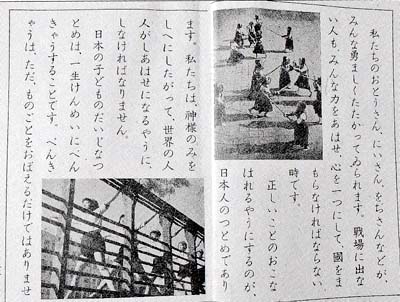 私たちのおとうさん、にいさん、をぢさんなどが、
みんな勇ましくたたかってゐられます。戦場に出な
い人も、みんな力をあはせ、心を一つにして、國をま
もらなければならない
時です。
正しいことのおこな
はれるやうにするのが、
日本人のつとめであり
ます。私たちは、神様のみを
しへにしたがって、世界の人
人がしあはせになるやうに、
しなければなりません。
日本の子どものだいじなつ
とめは、一生けんめいにべん
きゃうすることです。べんき
ゃうは、ただ、ものごとをおぼえるだけではありませ